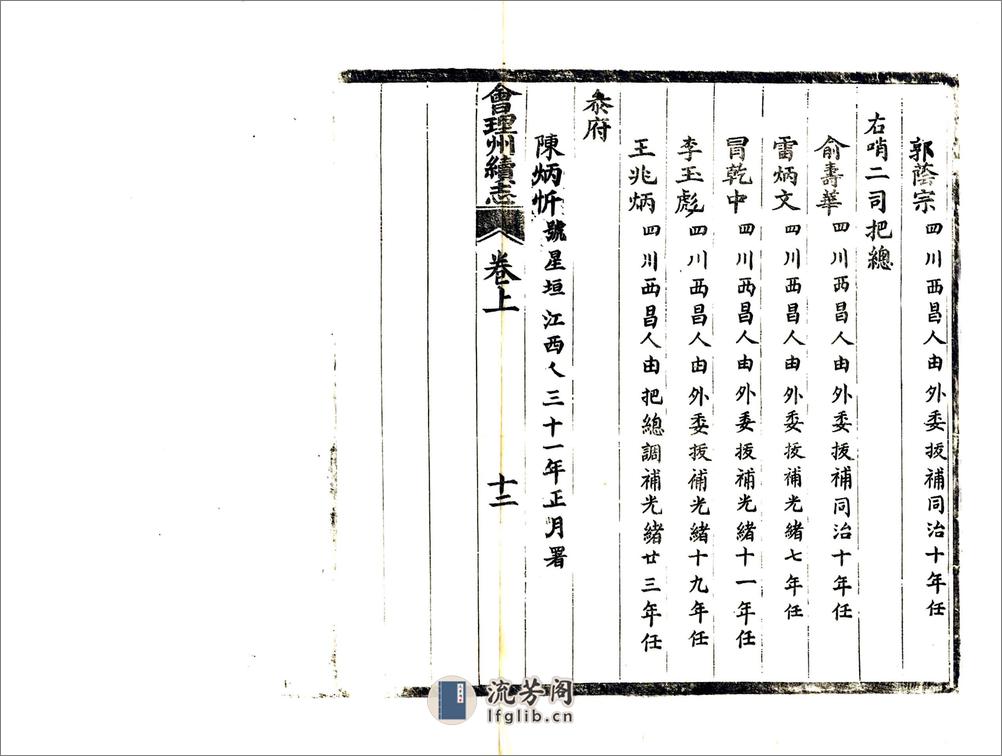 郭蔭宗四川西昌人由外委拔補同治十年任
右哨二司把總
俞壽華四川西昌人由外委拔補同治十年任
雷炳文四川西昌人由外委拔補光緒七年任
冐乾中四川西昌人由外委拔補光緒十一年任
李玉彪四川西昌人由外委拔補光緒十九年任
王兆炳四川西昌人由把總調補光緒廿三年任
叅府
陳炳忻號星垣江西人三十一年正月署
會理州續志
卷上
十二
流芳阁
lfglib.cn